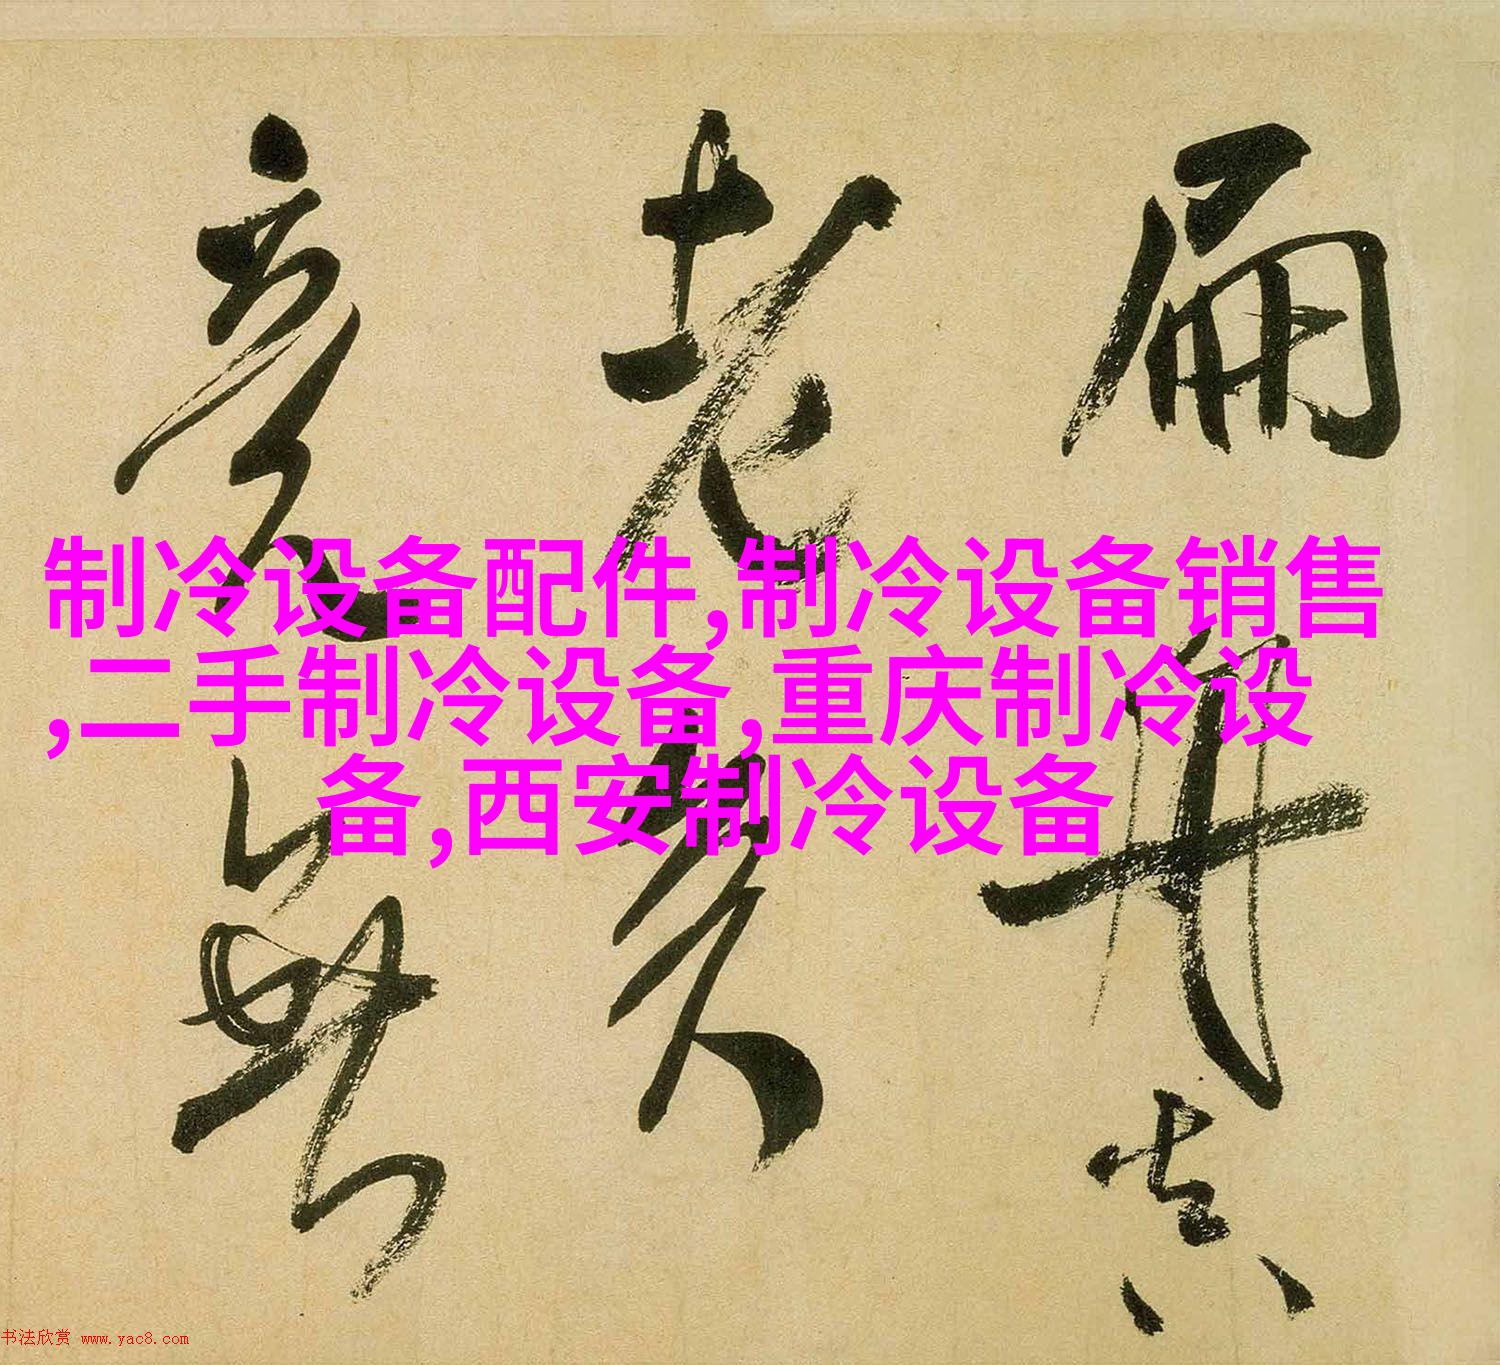 扁舟真
老矣
竟無
制冷设备配件,制冷设备销售
,二手制冷设备,重庆制冷设
备,西安制冷设备
书法欣赏 www.yac8.com